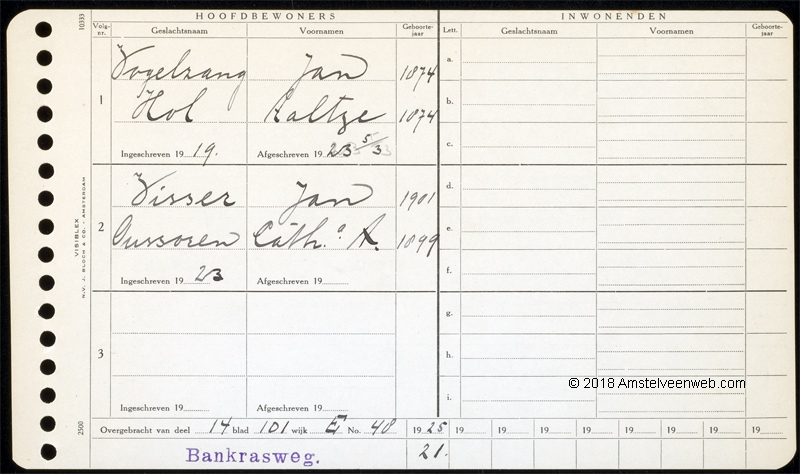 HOOFDBEWONERS INWONENDEN
Volg-nr. Geslachtsnaam Voornamen Geboorte-jaar Lett. Geslachtsnaam Voornamen Geboorte-jaar
10333
1
Vogelzang Jan 1874
Hol Aaltze 1874
Ingeschreven 19 19. Afgeschreven 19 23 5/33
2
Visser Jan 1901
Oussoren Cath.a A. 1899
Ingeschreven 19 23 Afgeschreven 19
3
Ingeschreven 19 Afgeschreven 19
a.
b.
c.
d.
e.
f.
g.
h.
i.
VISIBLEX
N.V. J. BLOCH & CO. - AMSTERDAM
2500
© 2018 Amstelveenweb.com
Overgebracht van deel 14 blad 101 wijk E No. 48 19 25 19 19 19 19 19 19 19 19
Bankrasweg. 21.